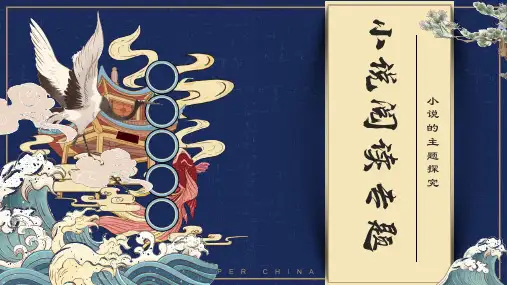 小说阅读专题
小说的主题探究
FER CHINA